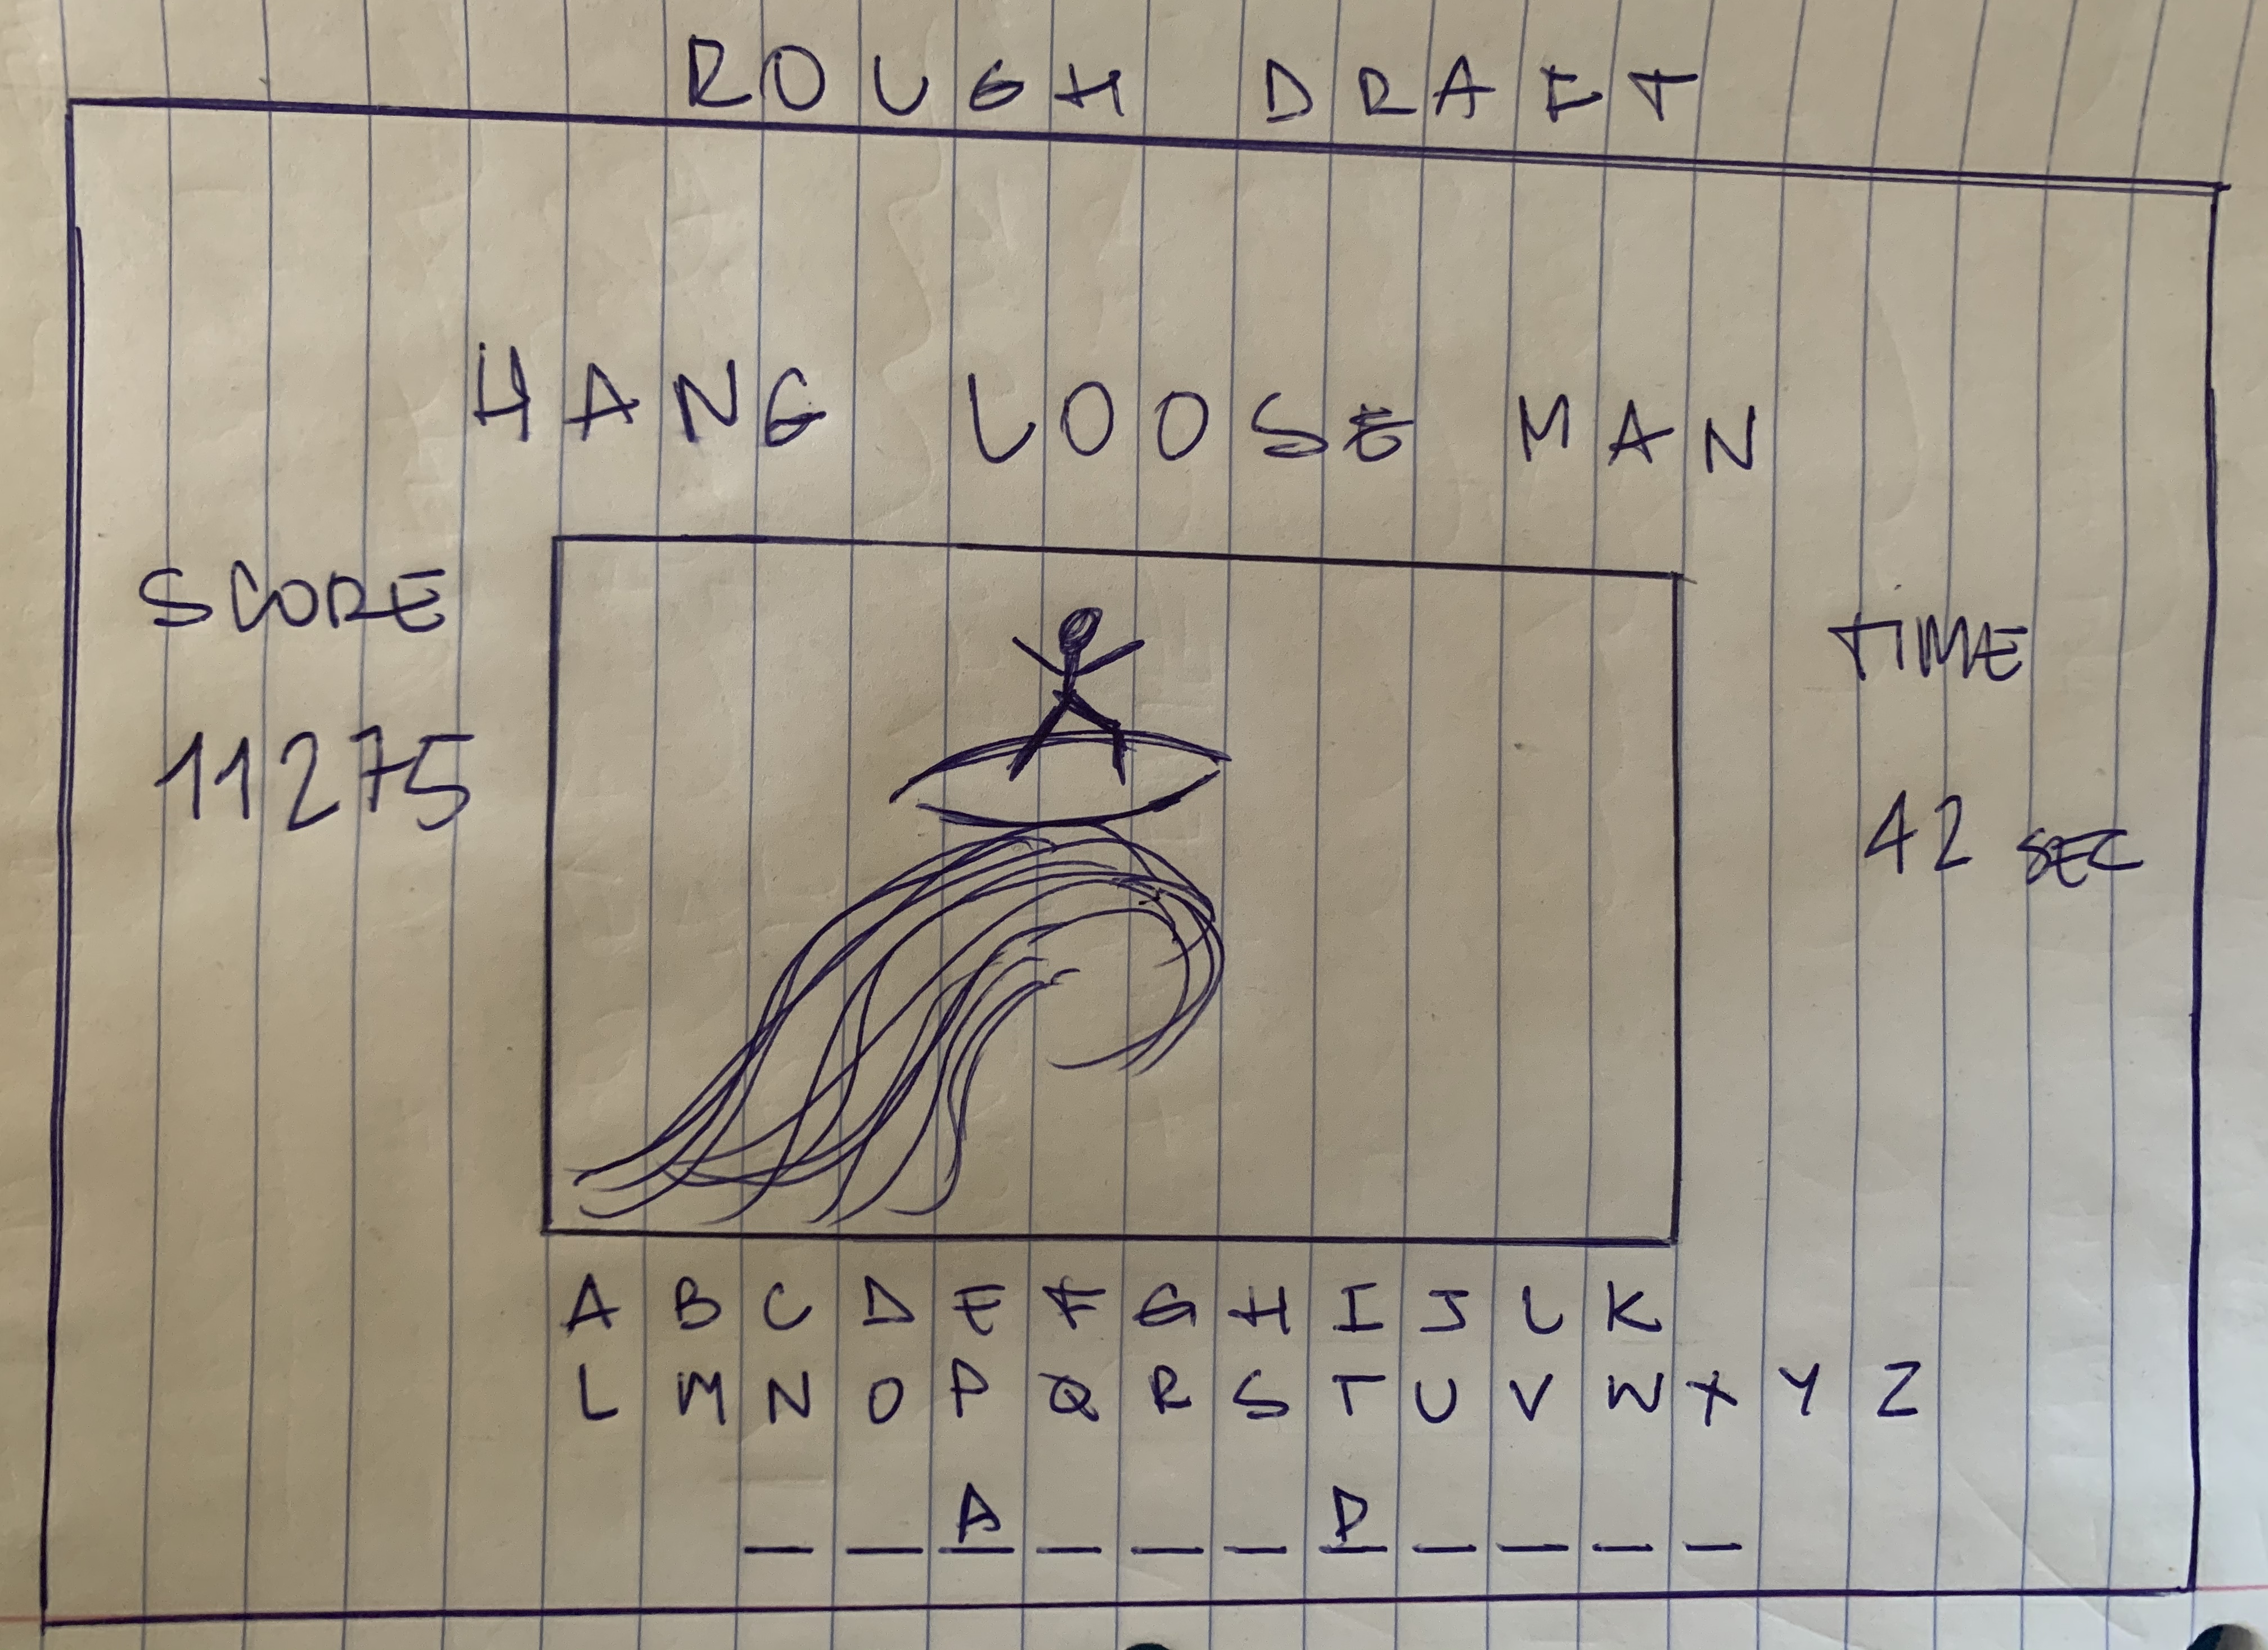 ROUGH DRAFT
HANG LOOSE MAN
SCORE
11275
TIME
42 SEC
A B C D E F G H I J L K
L M N O P Q R S T U V W X Y Z
_ _ A _ _ _ P _ _ _ _